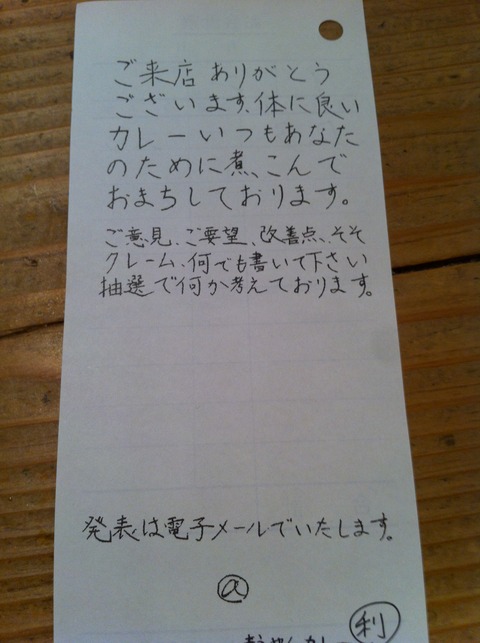 ご来店ありがとう
ございます、体に良い
カレーいつもあなた
のために煮、こんで
おまちしております。
ご意見、ご要望、改善点、そそ
クレーム、何でも書いて下さい
抽選で何か考えております。
発表は電子メールでいたします。
利